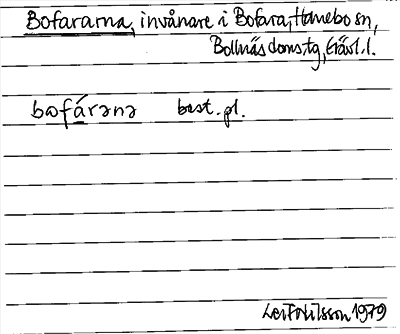 Bofararna, invånare i Bofara, Hanebo sn,
Bollnäs doms.tg, Gävl. l.
bωfárənə best. pl.
Leif Nilsson 1979